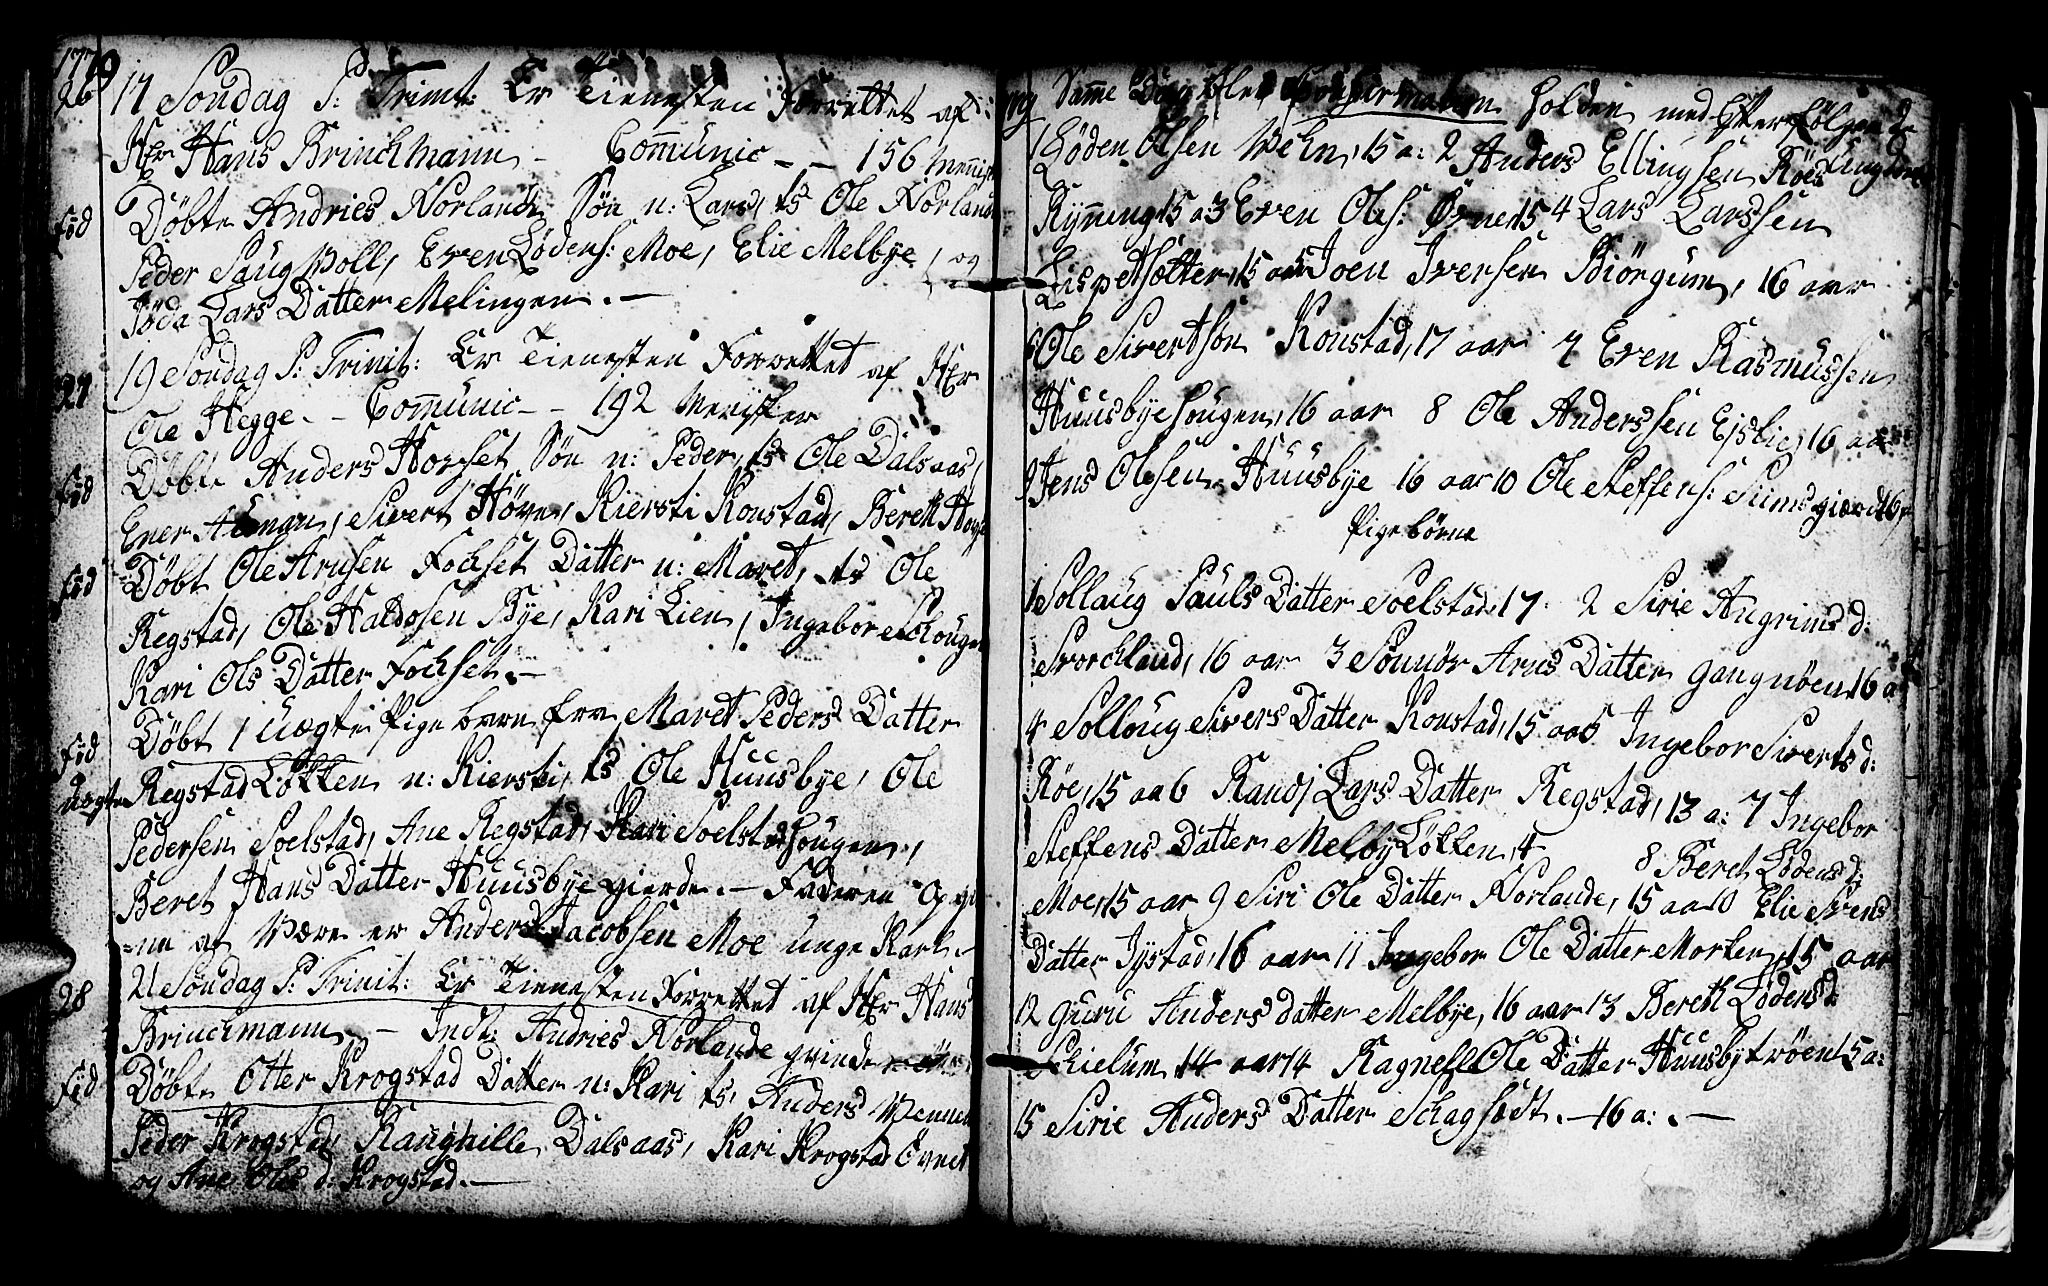 1779
26 17 Søndag P: Trinit: Er Tienesten Forrettet af
Hr Hans Brinchmann - Com̄unic - - 156 Menisk
Døbt Andries Norlands Søn n: Lars, ts Ole Norland
fid
Peder Saugvoll, Even Lødens: Moe, Elie Melbye, og
Jøda Lars Datter Melingen. -
27 19 Søndag P: Trinit: Er Tienesten Forrettet af Hr
Ole Hegge. - Com̄unic - - 192 Menisker
fid Døbt Anders Horset Søn n: Peder, ts Ole Dalsaas,
Ener Aunan, Sivert Høve, Kiersti Konstad, Beret
fid Døbt Ole Arnsen Fochset Datter n: Maret, ts Ole
Regstad, Ole Haldosen Bye, Kari Lien, Ingebor Schougen
Kari Ols Datter Fochset. -
fid Døbt 1 uægte Pige barn fra Maret Peders Datter
uægte Regstad Løkken n: Kiersti, ts Ole Huusbye, Ole
Pedersen Soelstad, Ane Regstad, Kari Soelstadhougen,
Beret Hans Datter Huusbyegierde. - Faderen Opgi
=ne at Være er Anders Jacobsen Moe unge Karl. -
28 21 Søndag P: Trinit: Er Tienesten Forrettet af Hr Hans
Brinchmann. - Indl: Andries Norlande qvinde
fid Døbt Otter Krogstad Datter n: Kari ts, Anders
Peder Krogstad, Raugnille Dalsaas, Kari Krogstad
og Ane Ols d: Krogstad. -
Sam̄e Dag blev Confirmation holden med Efterfølgende
1 Løden Olsen Vehn, 15 a: 2 Anders Ellingsen Röes Ungdom
Ryn̄ing 15 a 3 Even Ols: 15 4 Lars Larssen
15 aar 5 Joen Iversen Biørgum, 16 aar
6 Ole Sivertson Konstad, 17 aar 7 Even Rasmussen
Huusbyehougen, 16 aar 8 Ole Anderssen Ejslie, 16 aar
9 Jens Olsen Huusbye 16 aar 10 Ole Steffens: 16
Pigebørne
1 Sollaug Pauls Datter Soelstad, 17 2 Sirie Angrims d:
Svorchland, 16 aar 3 Sönnör Arns Datter Gangnöen 16 a
4 Solloug Sivers Datter Konstad, 15 aa 5 Ingebor Siverts d:
Röe, 15 aa 6 Randj Lars Datter Regstad, 13 a: 7 Ingebor
Steffens Datter Melby Løkken, 4 8 Beret Lødens d:
Moe, 15 aar 9 Siri Ole Datter Norlande, 15 aa 10 Elie Svend
Datter Jystad, 16 aar 11 Ingebor Ole Datter Morken, 15 aar
12 Guru Anders datter Melbye, 16 aar 13 Bereth Lødens d:
Schielum 14 aar 14 Ragnell Ole Datter Huusbytröen 15 a:
15 Sirie Anders Datter Schagfödt. - 16 a: -